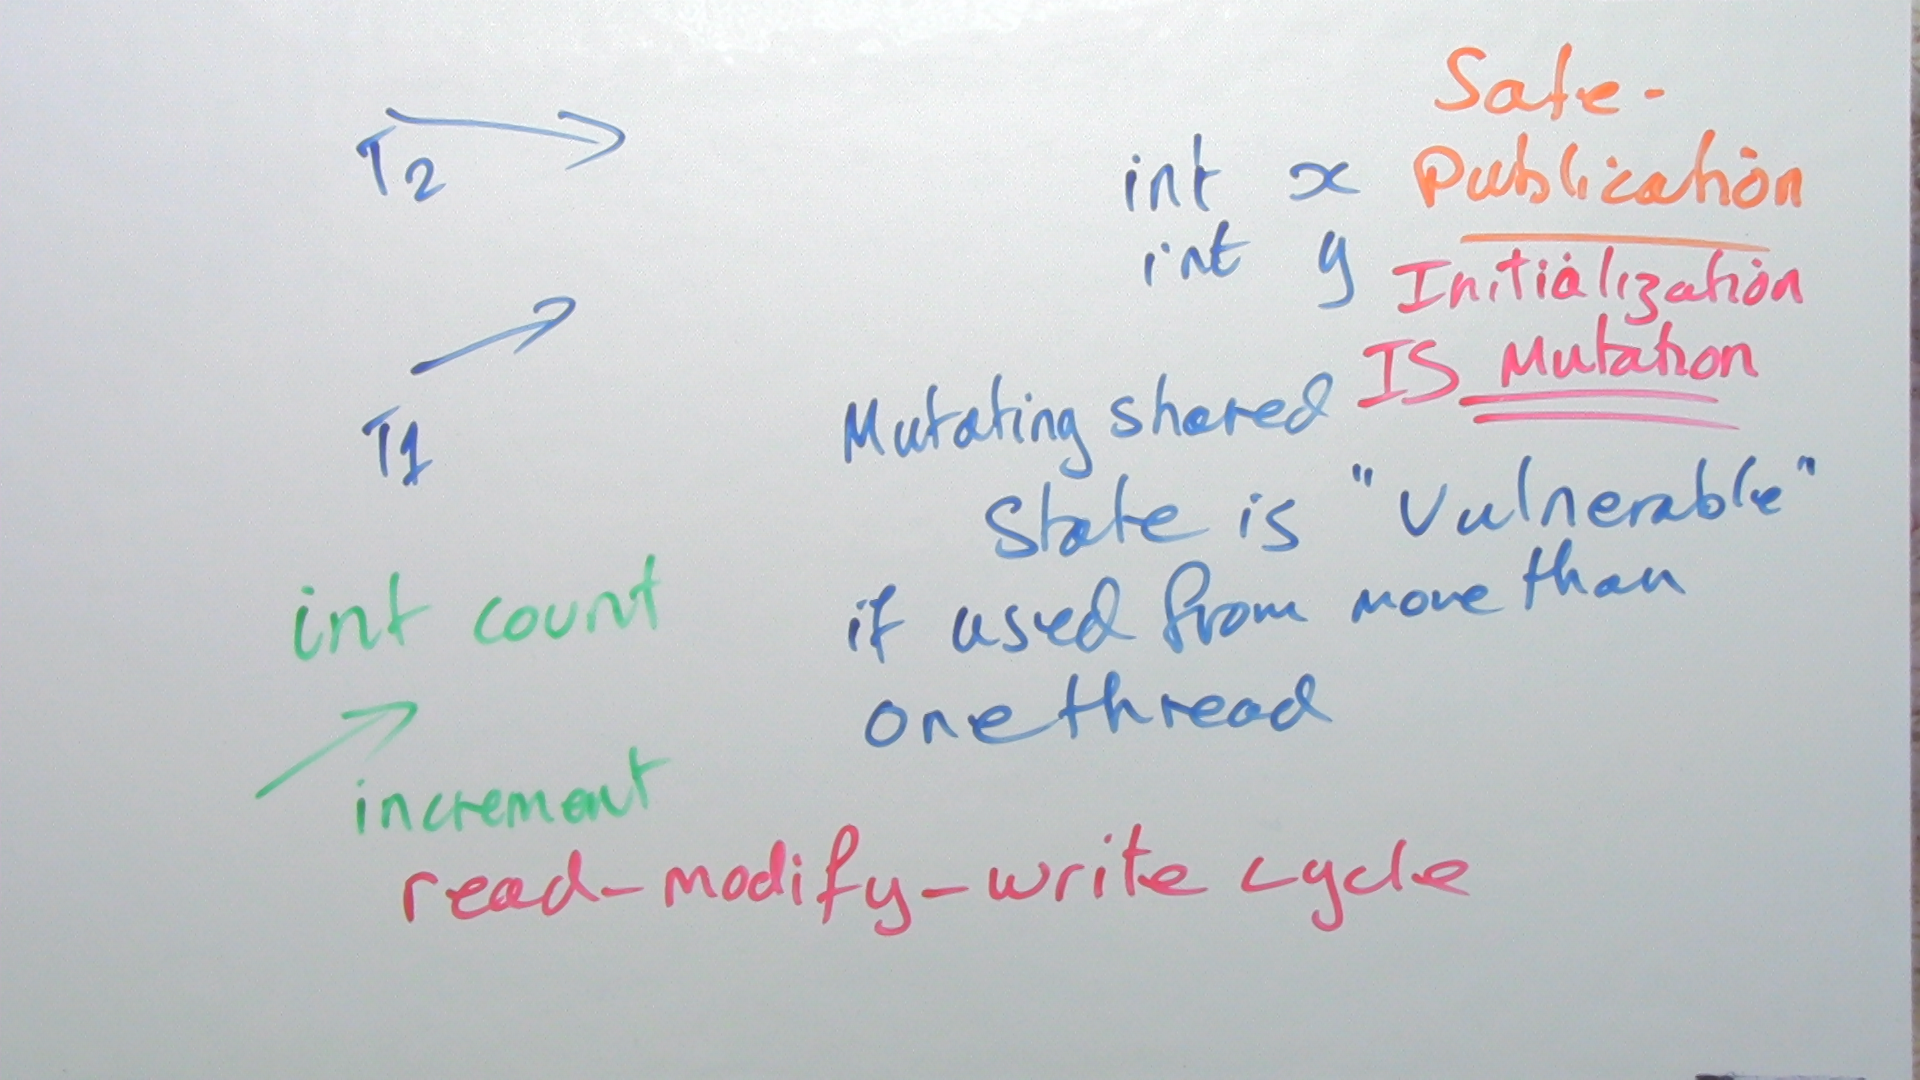 T2
T1
int x
int y
Safe-
Publication
Initialization
IS Mutation
Mutating shared
State is "Vulnerable"
if used from more than
one thread
int count
increment
read-modify-write cycle